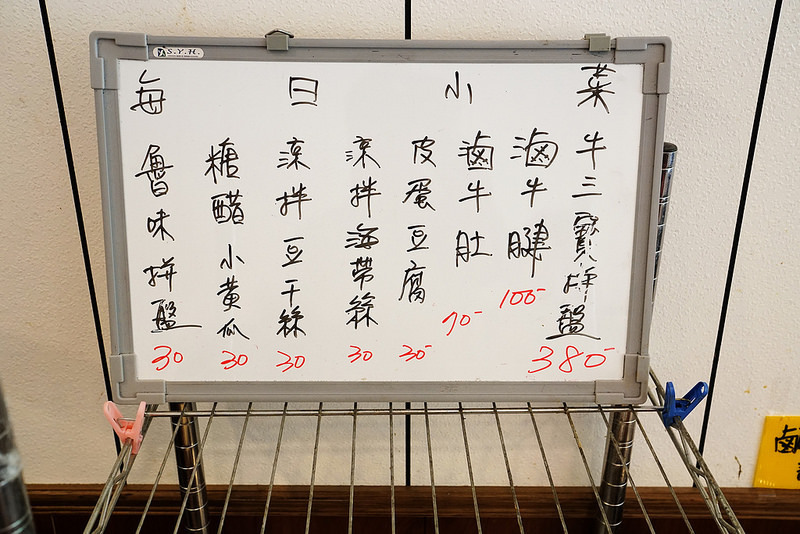 S.Y.H.
每日小菜
牛三寶拼盤 380-
滷牛腱 100-
滷牛肚 70-
皮蛋豆腐 30-
涼拌海帶絲 30
涼拌豆干絲 30
糖醋小黃瓜 30
魯味拼盤 30
滷